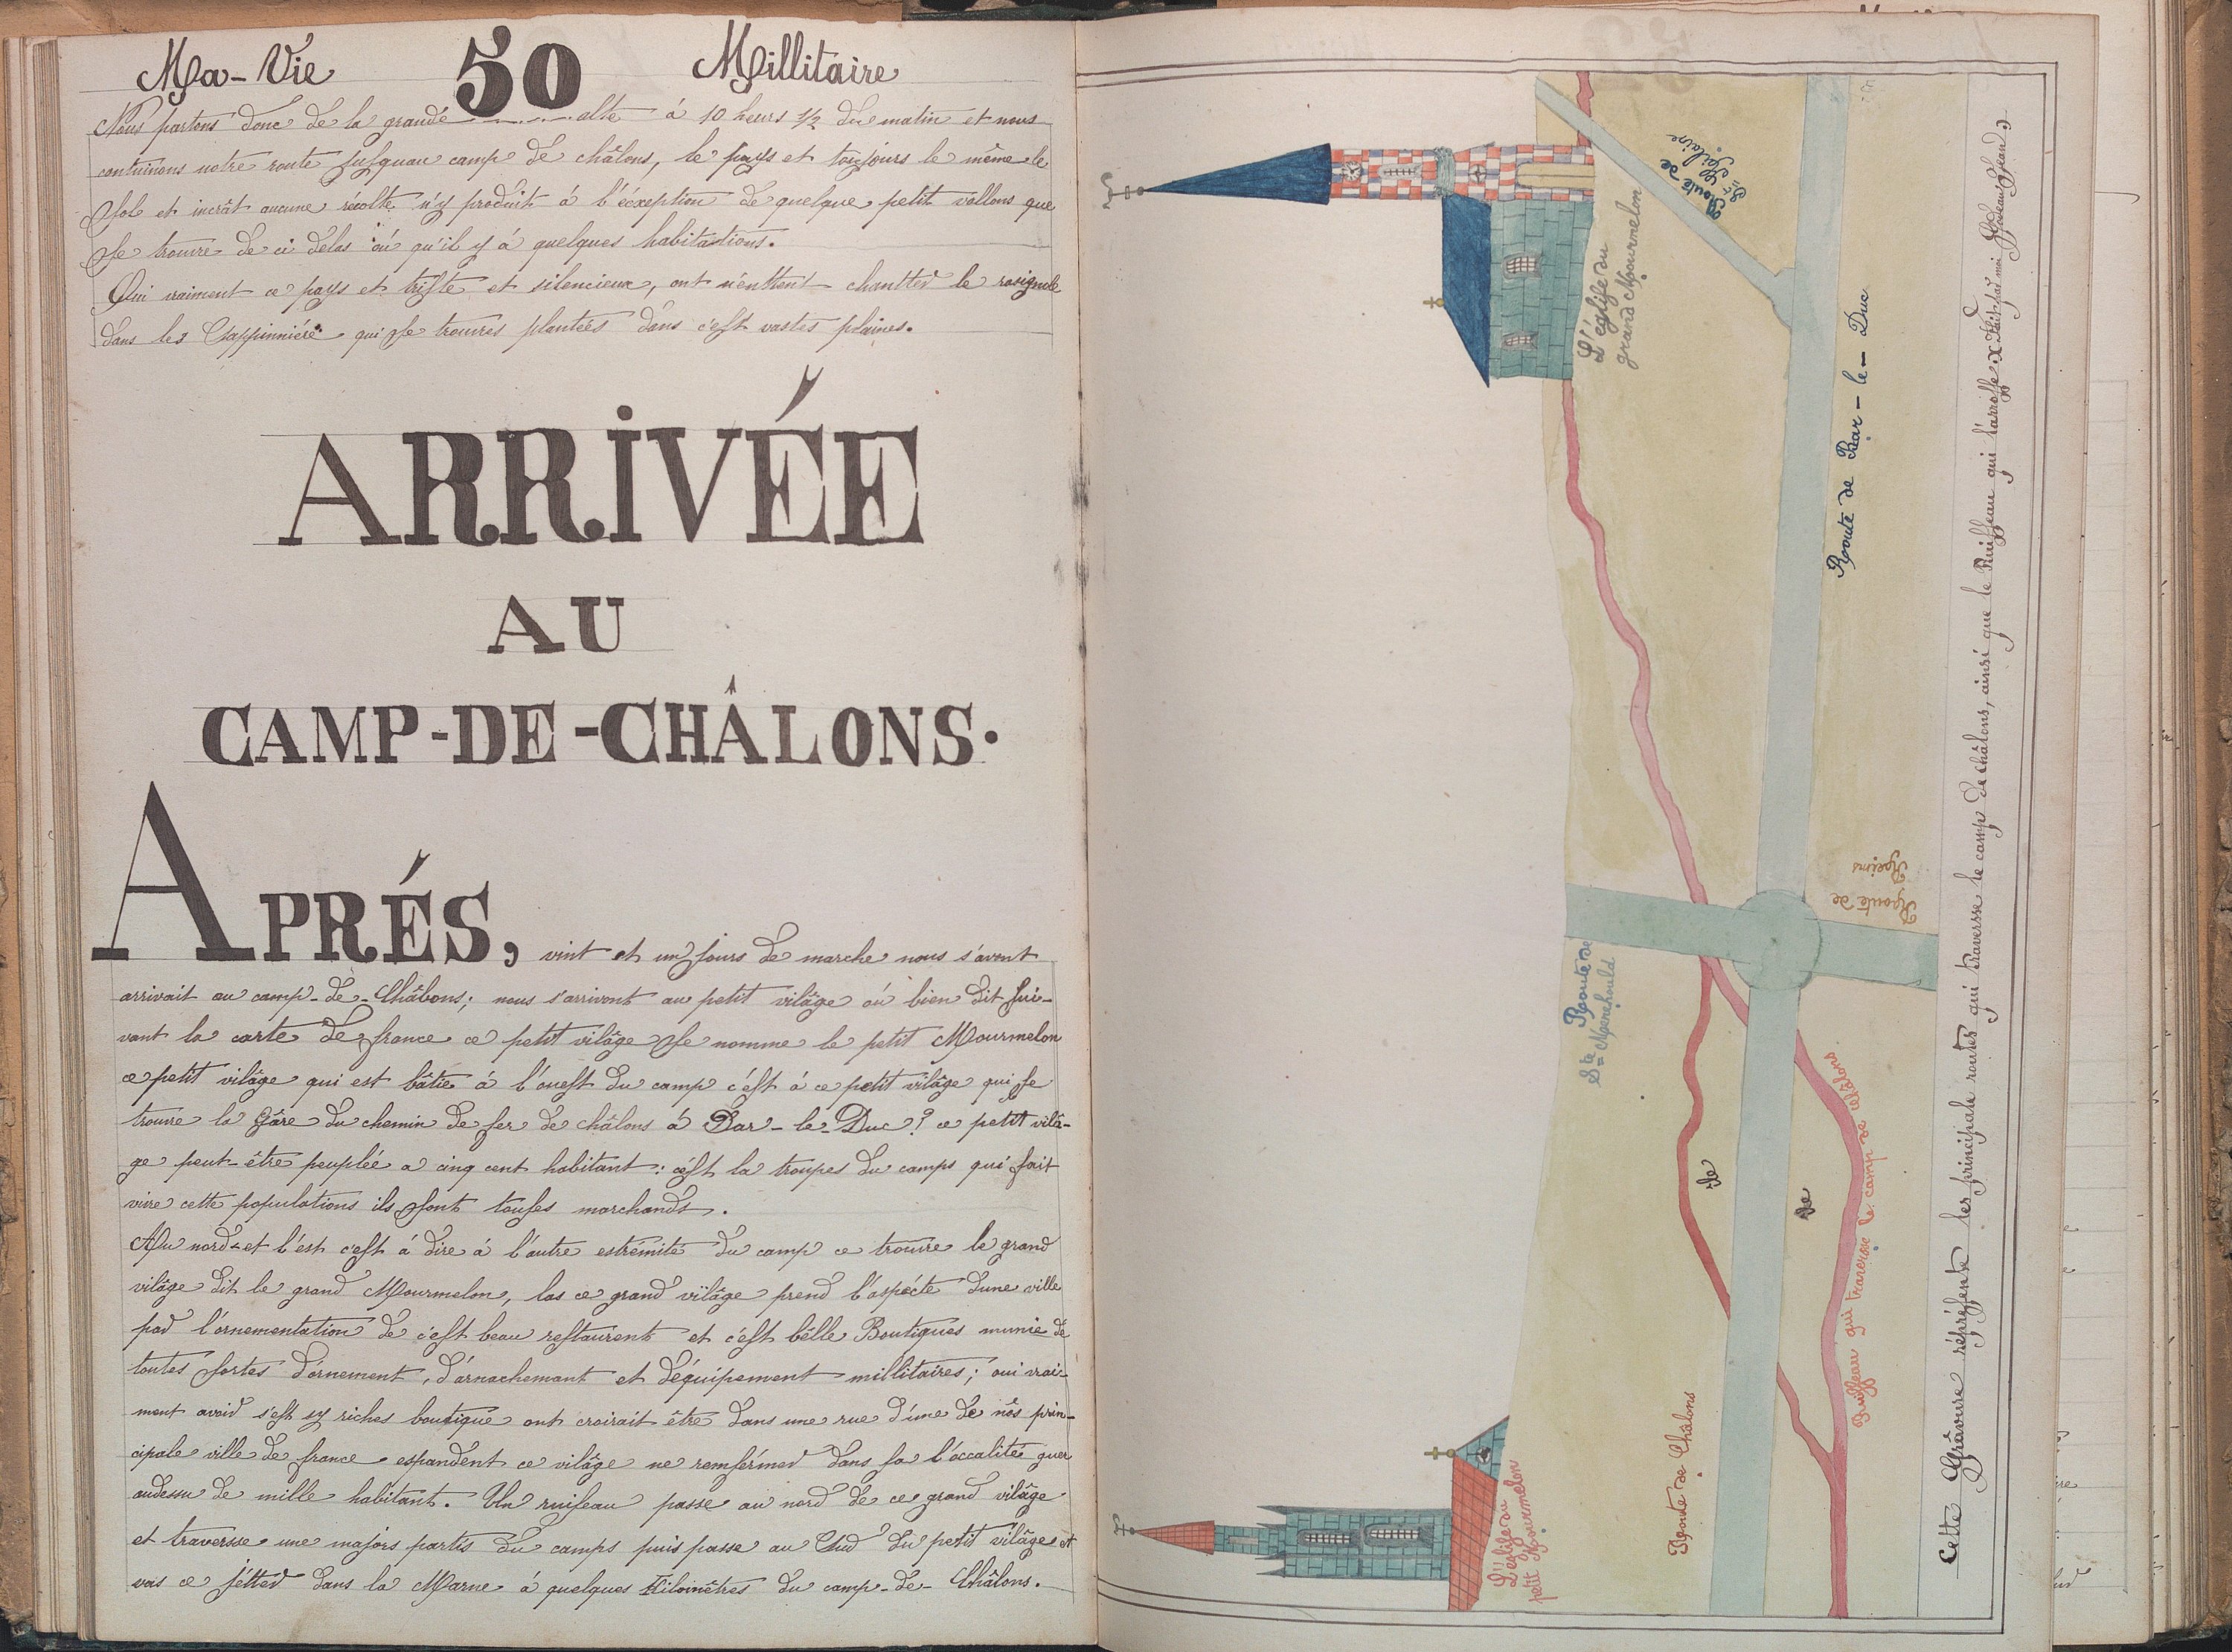 Ma-Vie 50 Millitaire
Nous partons donc de la grande alte á 10 heurs 1/2 du matin et nous
contuinons notre route jusquau camp dé châlons, le pays et toujours le même le
sol et incrât aucune récolte n'y produit á l'éxeption de quelque petit vallons que
se trouve de ci delas oú qu'il y á quelques habitations.
Oui vraiment ce pays et triste et silencieux, ont n'entent chantter le rosignole
dans les Sappinniére qui se trouves plantées dans c'est vastes plaines.
ARRIVÉE
AU
CAMP-DE-CHÂLONS.
APRÉS, vint et un jours de marche nous s'avont
arrivait au camp-de-Châlons; nous s'arrivont au petit vilâge oú bien dit sui-
vant la carte de france ce petit vilâge se nomme le petit Mourmelon
ce petit vilâge qui est bâtie á l'ouest du camp c'est á ce petit vilâge qui se
trouve la Gâre du chemin de fer de châlons á Bar-le-Duc? ce petit vilâ-
ge peut-être peuplée a cinq cent habitant: c'est la troupes du camps qui fait
vivre cette populations ils sont touses marchands.
Au nord-et l'est c'est á dire á l'autre estrémité du camp ce trouve le grand
vilâge dit le grand Mourmelon, las ce grand vilâge prend l'aspécte d'une ville
par l'ornementation de c'est beau restaurents et c'est bélle Boutiques munie de
toutes sortes d'órnement, d'arnachemant et d'équipement millitaires; oui vrai-
ment avoir s'est sy riches boutique ont croirait être dans une rue d'une de nôs prin-
cipale ville de france espandent ce vilâge ne remférmer dans sa l'óccalité guer
audessu de mille habitant. Un ruiseau passe au nord de ce grand vilâge
et traversse une majors partis du camps puis passe au Sud du petit vilâges et
vais ce jétter dans la Marne á quelques Kilomêtres du camp-dé-Châlons.
L'église du
grand Mourmelon
Route de
St Hilaire
Route de Bar-le-Duc
Route de
Reims
Route de
Ste Menehould
ile
ile
Ruisseau qui traversse le camp de châlons
Route de Châlons
L'église du
petit Mourmelon
Cette Grâvure répréssente les principale routes qui traversse le camp de châlons, ainsi que le Ruisseau qui l'arrosse x Fait par moi